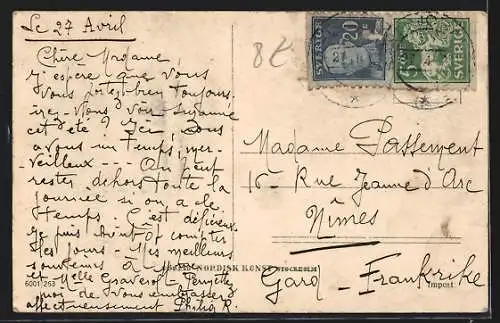 Le 27 Avril
Chère Madame,
J'espère que vous
vous portez bien toujours.
Irez-vous voir Suzanne
cet été ? Ici, nous
avons un temps mer-
veilleux --- On peut
rester dehors toute la
journée si on a le
temps. C'est délicieux
Je puis bientôt compter
les jours - Mes meilleurs
souvenirs à
et Melle Graverol -
moi de vous embrasser
affectueusement
8 €
SVERIGE
20
SVERIGE
5
Madame Passement
16 - Rue Jeanne d'Arc
Nîmes
Gard - Frankrike
NORDISK KONST STOCKHOLM
6001/253
Import